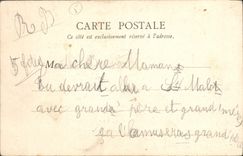 CARTE POSTALE
Ce côté est exclusivement réservé à l'adresse.
Ma chère Maman
tu devrait aller à St Malo
avec grand père et grand
ça l'amuserais grand